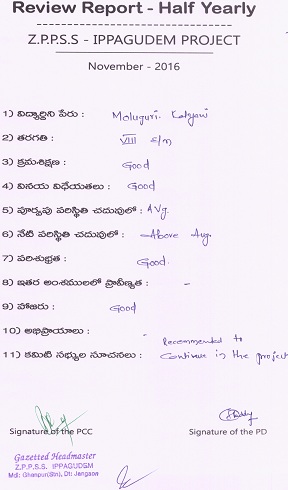 Review Report - Half Yearly
Z.P.P.S.S - IPPAGUDEM PROJECT
November - 2016
1) విద్యార్థిని పేరు : Moluguri. Kalyani
2) తరగతి : VIII E/M
3) క్రమశిక్షణ : Good
4) వినయ విధేయతలు : Good
5) పూర్వపు పరిస్థితి చదువులో : AVg.
6) నేటి పరిస్థితి చదువులో : Above Avg.
7) పరిశుభ్రత : Good.
8) ఇతర అంశములలో ప్రావీణ్యత : -
9) హాజరు : Good
10) అభిప్రాయాలు : -
11) కమిటి సభ్యుల సూచనలు : Recommended to
Continue in the project
Signature of the PCC Signature of the PD
Gazetted Headmaster
Z.P.S.S. IPPAGUDEM
Mdl: Ghanpur(Stn), Dt: Jangaon